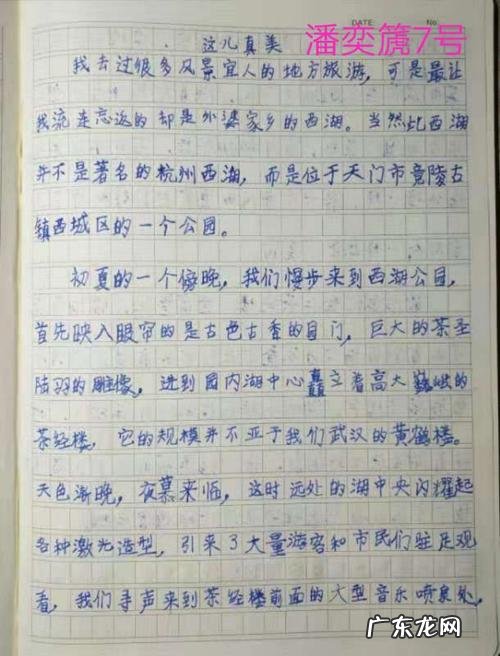 DATE: No
潘奕篪7号
这儿真美
我去过很多风景宜人的地方旅游,可是最让
我流连忘返的却是外婆家乡的西湖。当然此西湖
并不是著名的杭州西湖,而是位于天门市竟陵古
镇西城区的一个公园。
初夏的一个傍晚,我们慢步来到西湖公园,
首先映入眼帘的是古色古香的目门,巨大的茶圣
陆羽的雕像,进到园内湖中心矗立着高大巍峨的
茶经楼,它的规模并不亚于我们武汉的黄鹤楼。
天色渐晚,夜幕来临,这时远处的湖中央闪耀起
各种激光造型,引来了大量游客和市民们驻足观
看,我们寻声来到茶经楼前面的大型音乐喷泉处,
广东龙网